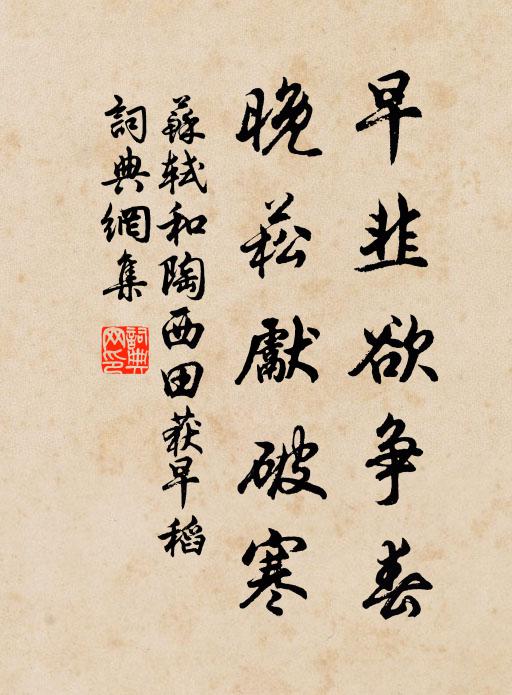 早韭欲争春
晚菘獻破寒
蘇軾和陶西田获早稻
詞典網集
詞典网印